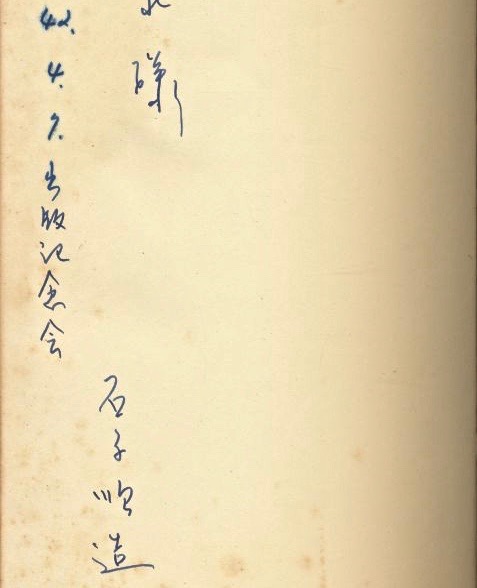 様
石子順造
42.4.7.出版記念会